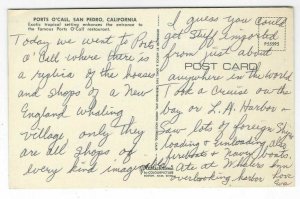 PORTS O'CALL, SAN PEDRO, CALIFORNIA
Exotic tropical setting enhances the entrance to
the famous Ports O'Call restaurant.
Today we went to Ports
O' Call where there is
a replica of the houses
and shops of a New
England Whaling
village only they
are all shops of
every kind imaginable
I guess you could
get stuff imported
from just about
anywhere in the world
POST CARD
Took a Cruise on the
bay or L.A. Harbor &
Saw lots of foreign Ships
Loading & unloading also
fireboats & navy boats.
Ate at Whalers Inn
overlooking harbor
Love